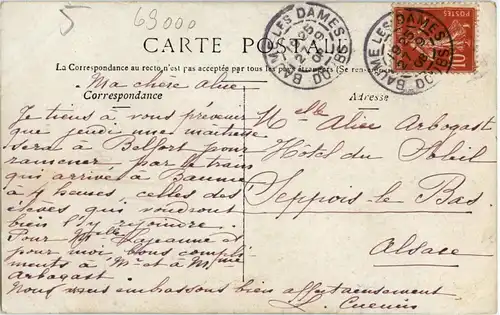 5
69000
CARTE POSTALE
BAUME-LES-DAMES
DOUBS
BAUME-LES-DAMES
DOUBS
POSTES
10
La Correspondance au recto, n'est pas acceptée par tous les pays étrangers (Se renseigner
Correspondance
Adresse
Ma chère Alice
Je tiens à vous prévenir
que jeudi une maîtresse
sera à Belfort pour
ramener, par le train
qui arrive à Baume
à 4 heures, celles des
élèves qui voudront
bien l'y rejoindre.
Pour Melle Lajeanne et
pour moi, bons compli-
ments à Mr et à Mme
Arbogast.
Nous vous embrassons bien affectueusement
L. Cuenin
Melle Alice Arbogast
Hôtel du Soleil
Seppois-le-Bas
Alsace